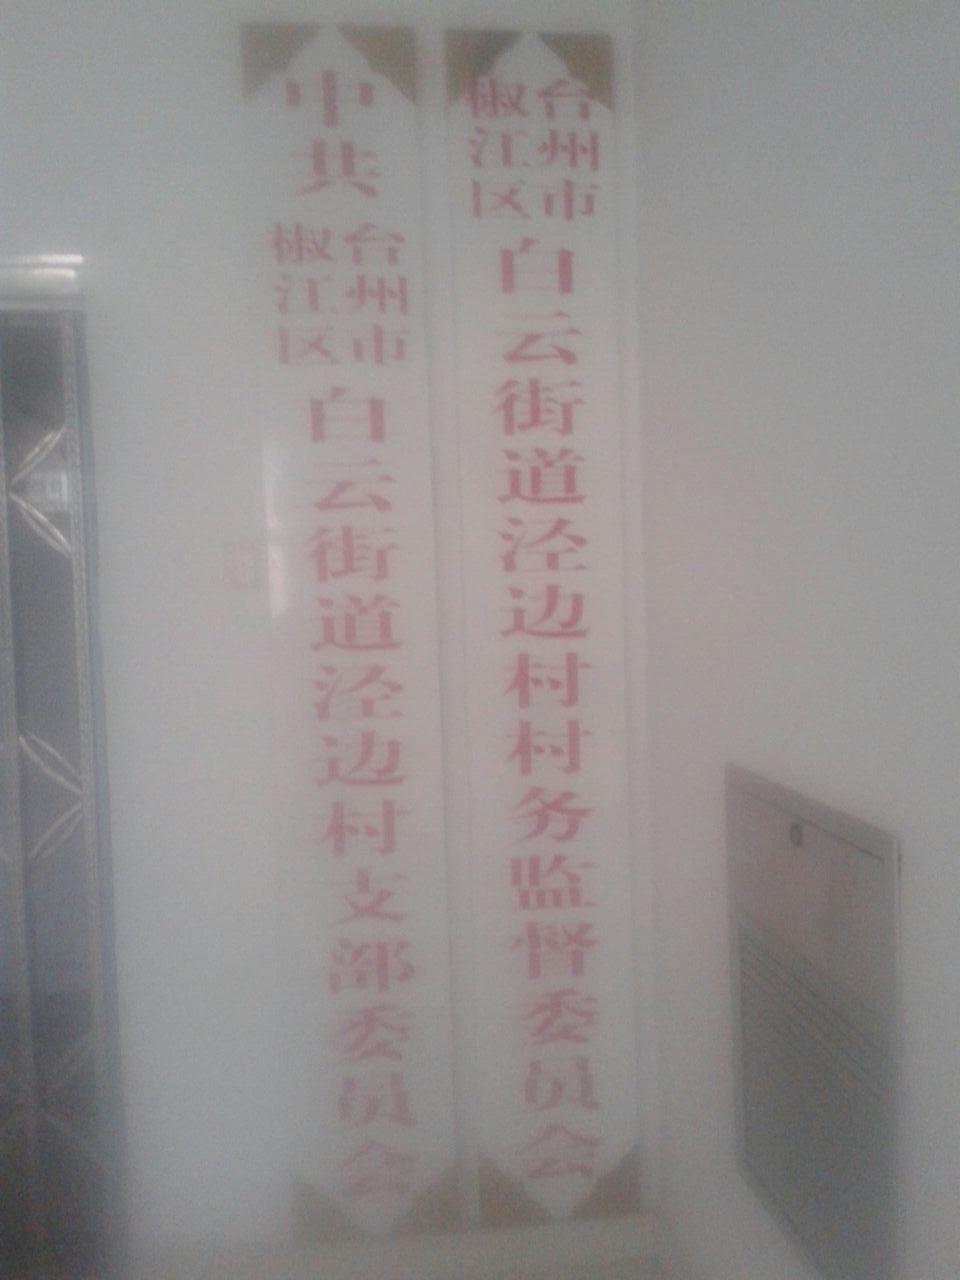 中共台州市椒江区白云街道泾边村支部委员会
台州市椒江区白云街道泾边村村务监督委员会